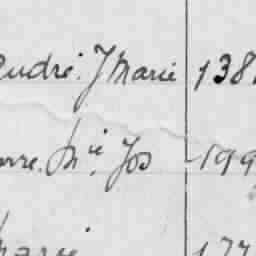 André. J Marie 138
erre. Mie Jos 199
Marie 177